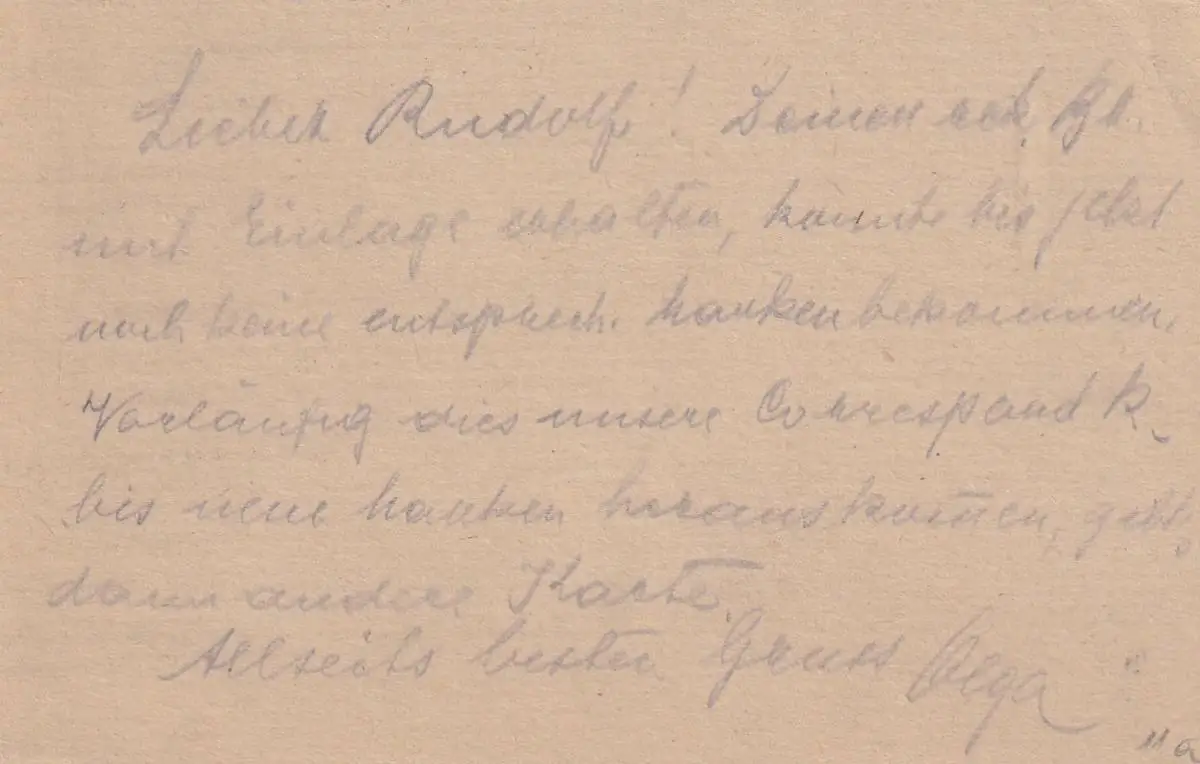 Lieber Rudolf! Deinen rek. Bf.
mit Einlage erhalten, konnte bis jetzt
noch keine entsprech. Marken bekommen,
Vorläufig dies unsere Correspond K.
bis neue Marken herauskom̅en, gibt's
dann andere Karte.
Allseits besten Gruss Olga